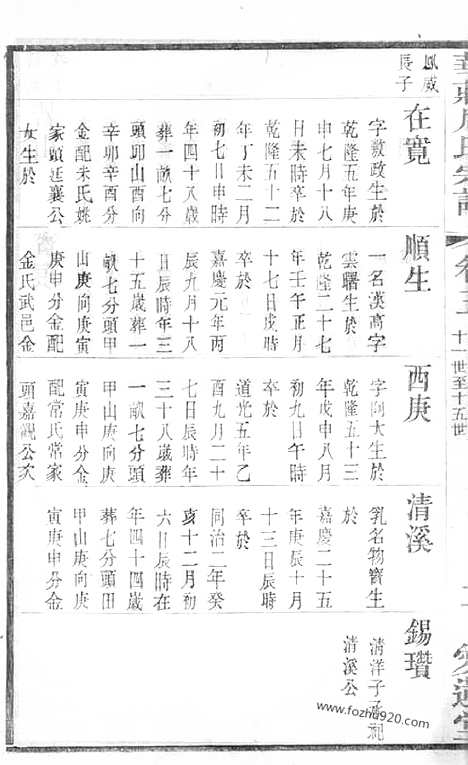 鳳威
長子
在寬
字敷政生於
乾隆五年庚
申七月十八
日未時卒於
乾隆五十二
年丁未二月
初七日申時
年四十八歲
葬一畝七分
頭卯山酉向
辛卯辛酉分
金配朱氏姚
家頭廷襄公
女生於
順生
一名漢高字
雲曙生於
乾隆二十七
年壬午正月
十七日戌時
卒於
嘉慶元年丙
辰九月十八
日辰時年三
十五歲葬一
畝七分頭甲
山庚向庚寅
庚申分金配
金氏武邑金
西庚
字向大生於
乾隆五十三
年戊申八月
初九日午時
卒於
道光五年乙
酉九月二十
七日辰時年
三十八歲葬
一畝七分頭
甲山庚向庚
寅庚申分金
配常氏常家
頭嘉觀公次
清溪
乳名物寶生
於
嘉慶二十五
年庚辰十月
十三日辰時
卒於
同治二年癸
亥十二月初
六日辰時在
年四十四歲
葬七分頭田
甲山庚向庚
寅庚申分金
錫瓚
清洋子承祀
清溪公
十一世至十五世
www.fozhu920.com